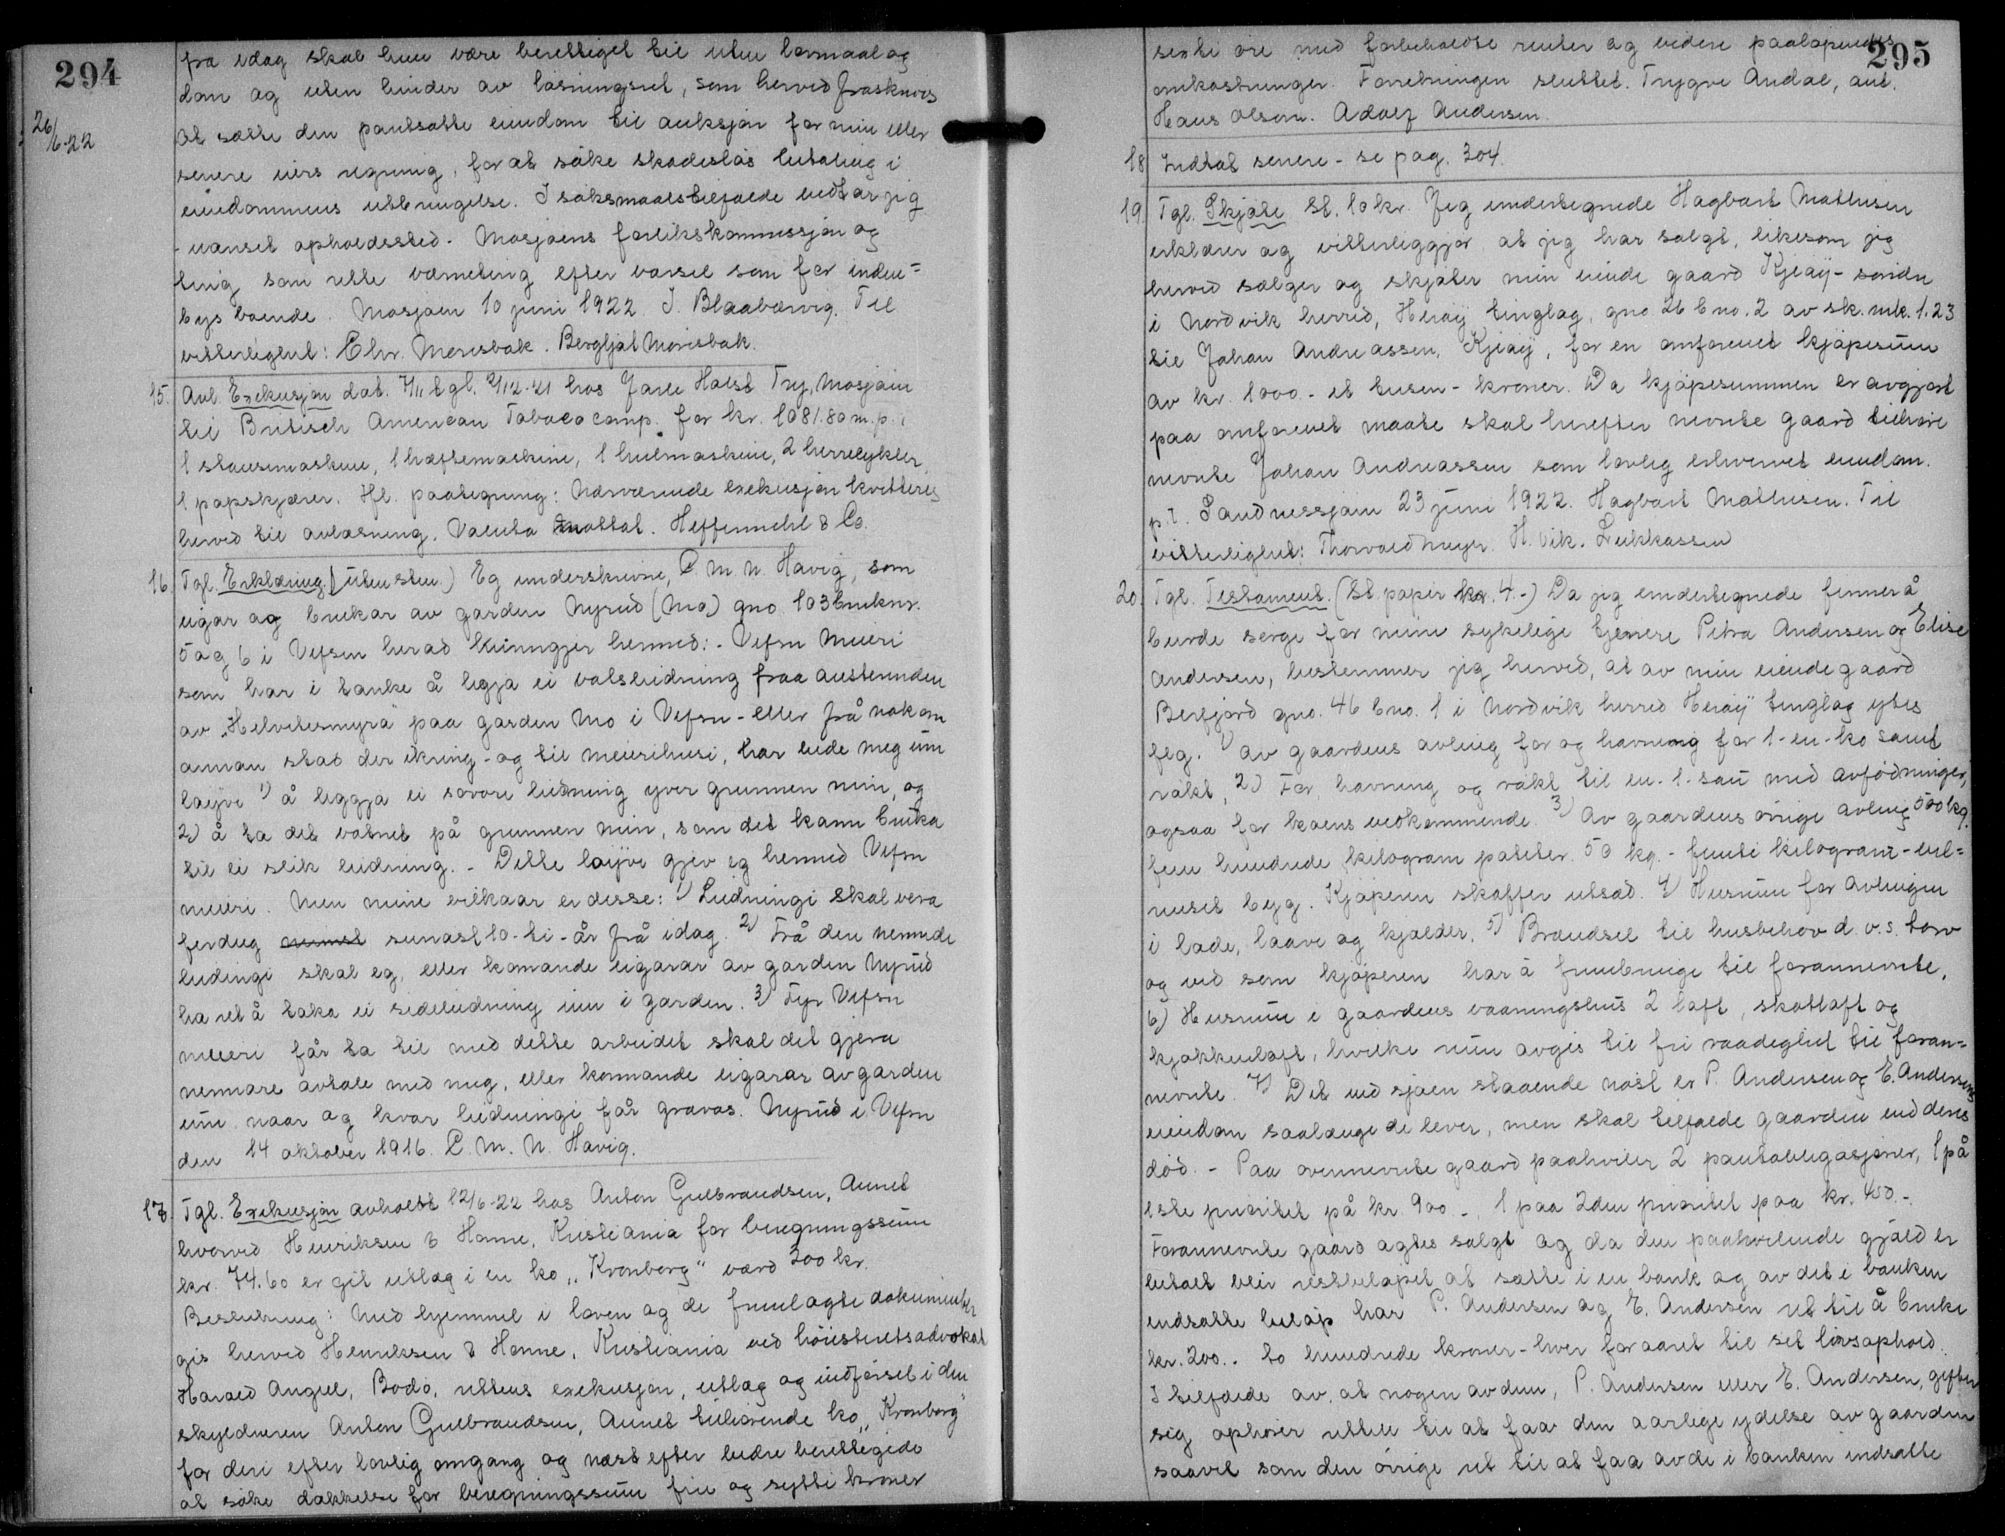 294
26/6-22
fra idag skal hun være berettiget til uten lovmaal og
dom og uten hinder av løsningsret, som herved fraskrives
at sætte den pantsatte eiendom til auksjon for min eller
senere eiers regning, for at søke skadesløs betaling i
eiendommens utbringelse. I søksmaalstilfælde vedtar jeg
- uanset opholdssted - Mosjøens forlikskommissjon og
ting som rette værneting efter varsel som for inden=
bys boende. Mosjøen 10 juni 1922 J. Blaabærvig. Til
vitterlighet: Chr. Morisbak. Bergljot Morisbak.
15. Avl. Exekusjon dat. 7/11 tgl. 2/12-21 hos Jarle Halst Try, Mosjøin
til Britisch American Tobaco comp. for kr. 1081.80 m.p. i
1 stansemaskine, 1 hæftemaskine, 1 hulmaskine, 2 herrecykler,
1 papskjærer. Hf. paategning: Nærværende exekusjon kvitteres
herved til avlæsning. Valuta mottat. Heffermehl & Co.
16. Tgl. Erklæring. (uten stem.) Eg underskrivne, P. M. N. Havig, som
eigar og brukar av garden Nyrud (Mo) gno. 103 bruksnr.
5 og 6 i Vefsn herad kunngjer hermed: - Vefsn Meieri
som har i tanke å legja ei vatsleidning fraa austerenden
av "Helvetesmyra" paa garden Mo i Vefsn - eller frå nokon
annan stad der ikring - og til meierihusi, har bede meg um
løyve 1) å leggja ei sovore leidning yver grunnen min, og
2) å ta det vatnet på grunnen min, som det kann bruka
til ei slik leidning. - Dette løyve gjev eg hermed Vefsn
meieri. Men mine vilkaar er desse: 1) Leidningi skal vera
ferdug seinast 10 - ti - år frå idag. 2) Frå den nemnde
leidingi skal eg, eller komande eigarar av garden Nyrud
ha ret å taka ei sideleidning inn i garden. 3) Fyr Vefsn
meieri får ta til med dette arbeidet skal det gjera
nermare avtale med meg, eller komande eigarar av garden
um naar og kvar leidningi får gravas. Nyrud i Vefsn
den 14 oktober 1916. P. M. N. Havig.
17. Tgl. Exekusjon avholdt 12/6-22 hos Anton Gulbrandsen, Aunet
hvorved Henriksen & Hanne, Kristiania for beregningssum
kr. 74.60 er git utlæg i en ko "Kronborg" værd 300 kr.
Beslutning: Med hjemmel i loven og de fremlagte dokumenter
gis herved Henriksen & Hanne, Kristiania ved höiesteretsadvokat
Harald Angell, Bodø, rettens exekusjon, utlæg og indførsel i den
skyldneren Anton Gulbrandsen, Aunet tilhørende ko "Kronborg"
for deri efter lovlig omgang og næst efter bedre berettigede
at søke dækkelse for beregningssum fire og sytti kroner
295
seksti øre med forbeholdte renter og videre paaløpende
omkostninger. Forretningen sluttet. Trygve Andal, aut.
Hans Olsen. Adolf Andersen.
18 Indtat senere - se pag. 304.
19. Tgl. Skjøte st. 10 kr. Jeg undertegnede Hagbart Mathisen
erklærer og vitterliggjør at jeg har solgt, likesom jeg
herved sælger og skjøter min eiende gaard Kjeøy - søndre
i Nordvik herred, Herøy tinglag, gno. 26 bno. 2 av sk. mk. 1.23
til Johan Andreassen, Kjeøy, for en omforenet kjøpesum
av kr. 1000 - et tusen - kroner. Da kjøpesummen er avgjort
paa omforenet maate skal herefter nevnte gaard tilhøre
nevnte Johan Andreassen som lovlig erhvervet eiendom.
p.t. Sandnessjøen 23 juni 1922. Hagbart Mathisen. Til
vitterlighet: Thorvald Meyer. H. Vik. Lukkassen
20. Tgl. Testament. (St. papir kr. 4.-) Da jeg undertegnede finner å
burde sørge for mine sykelige tjenere Petra Andersen og Elise
Andersen, bestemmer jeg herved, at av min eiende gaard
Berfjord gno. 46 bno. 1 i Nordvik herred Herøy tinglag ytes
flg. 1) av gaardens avling for og havning for 1 - en - ko samt
røkt, 2) For, havning og røkt til en - 1 - sau med avfødninger,
ogsaa for koens vedkommende. 3) Av gaardens øvrige avling 500 kg.
fem hundrede kilogram poteter. 50 kg. - femti kilogram - uil=
renset byg. Kjøperen skaffer utsæd. 4) Husrum for avlingen
i lade, laave og kjælder. 5) Brændsel til husbehov d.v.s. torv
og ved som kjøperen har å frembringe til forannevnte.
6) Husrum i gaardens vaaningshus 2 loft, skotloft og
kjøkkenloft, hvilke rum avgis til fri raadighet til foran=
nevnte. 7) Det ved sjøen staaende nøst er P. Andersen og E. Andersens
eiendom saalænge de lever, men skal tilfalde gaarden ved deres
død. - Paa ovennevnte gaard paahviler 2 pantobligasjoner, 1 på
1ste prioritet på kr. 900 -, 1 paa 2den prioritet paa kr. 450.-
Forannevnte gaard agtes solgt og da den paahvilende gjæld er
betalt blir restbeløpet at sætte i en bank og av det i banken
indsatte beløp har P. Andersen og E. Andersen ret til å bruke
kr. 200.. to hundrede kroner - hver for aaret til sit livsophold.
I tilfælde av, at nogen av dem, P. Andersen eller E. Andersen, gifter
sig ophører retten til at faa den aarlige ydelse av gaarden
saavel som den øvrige ret til at faa av de i banken indsatte